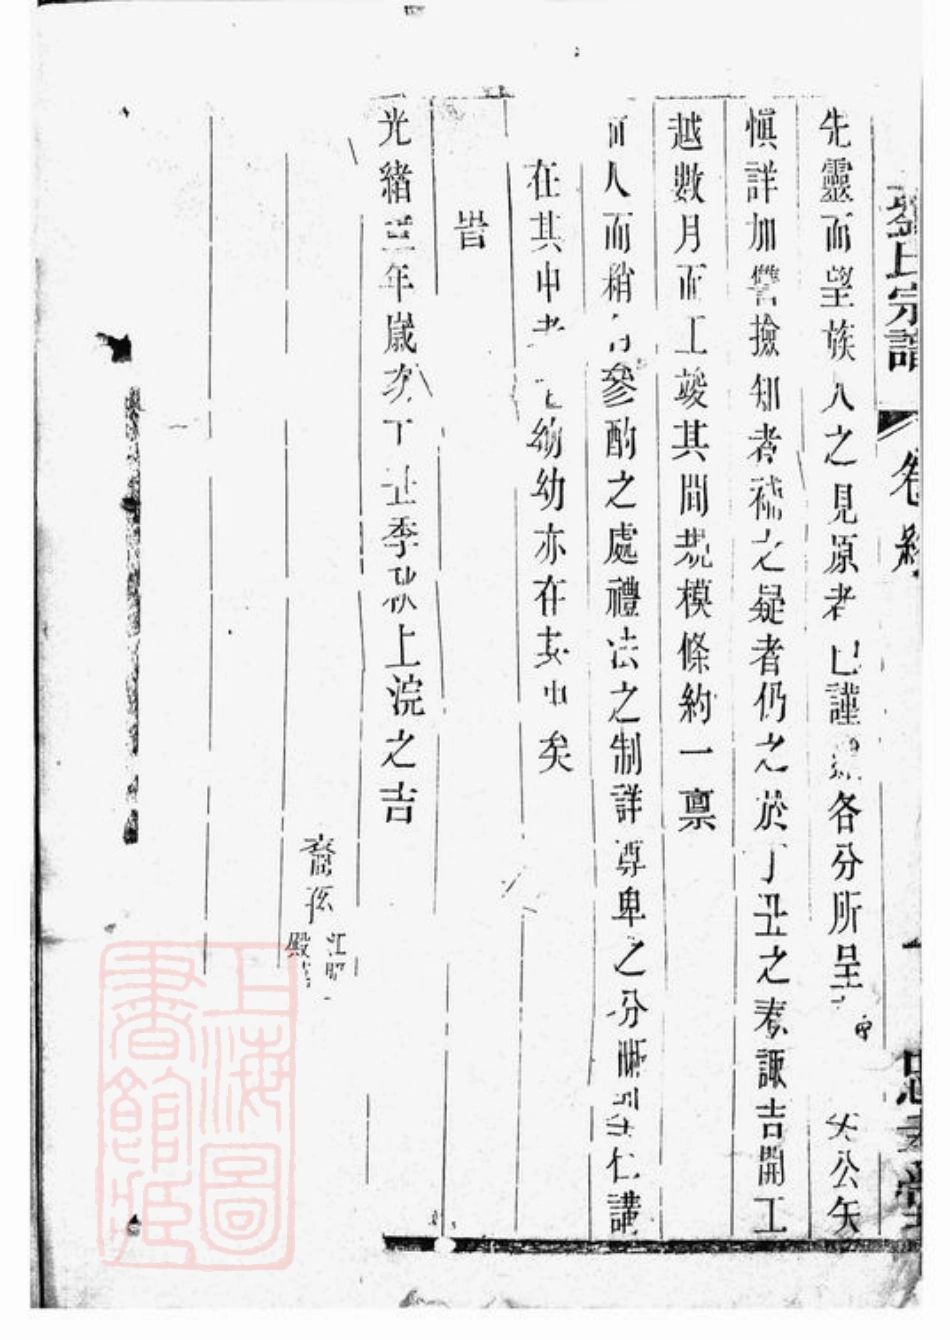 氏宗譜
卷終
先靈而望族人之見原者已謹 各分所呈 公矢
慎詳加讐撿知者補之疑者仍之於丁丑之春諏吉開工
越數月而工竣其間規模條約一禀
前人而稍有參酌之處禮法之制詳尊卑之分晰 仁講
在其中老 幼幼亦在其中矣
旹
光緒三年歲次丁丑季秋上浣之吉
裔孫
殿
上海圖書館藏